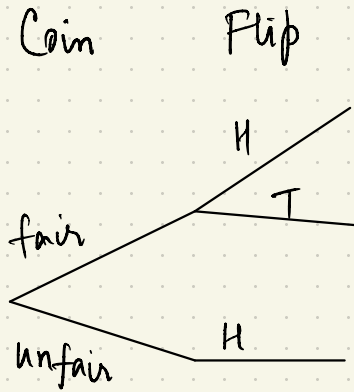 Coin Flip
H
T
fair
H
unfair